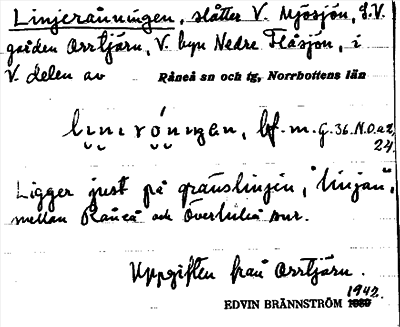 Linjeränningen, slåtter V. Mjösjön, S.V.
gården Orrtjärn, V. byn Nedre Flåsjön, i
V. delen av Råneå sn och tg, Norrbottens län
bf. m. G. 36. N.O. a 2,
24.
Ligger just på gränslinjen, "linjan",
mellan Råneå och Överluleå snr.
Uppgiften från Orrtjärn.
1942.
EDVIN BRÄNNSTRÖM 1939